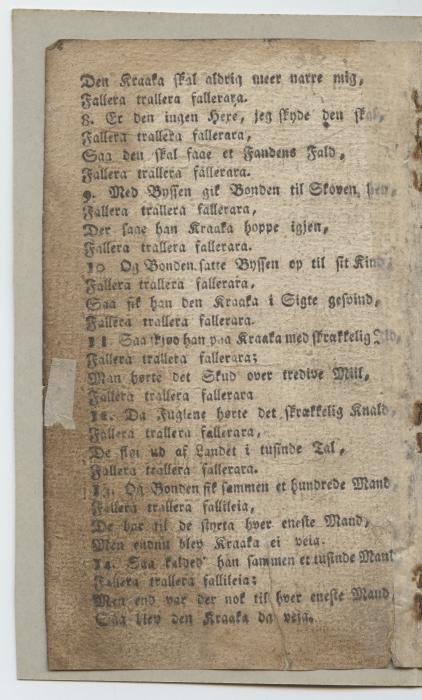 Den Kraaka skal aldrig meer narre mig,
Fallera trallera fallerara.
8. Er den ingen Hexe, jeg skyde den skal,
Fallera trallera fallerara,
Saa den skal faae et Fandens Fald,
Fallera trallera fallerara.
9. Med Byssen gik Bonden til Skoven hen,
Fallera trallera fallerara,
Der saae han Kraaka hoppe igjen,
Fallera trallera fallerara.
10 Og Bonden satte Byssen op til sit Kind,
Fallera trallera fallerara,
Saa fik han den Kraaka i Sigte gesvind,
Fallera trallera fallerara.
11. Saa skjød han paa Kraaka med skrækkelig Ild,
Fallera trallera fallerara;
Man hørte det Skud over tredive Miil,
Fallera trallera fallerara
12. Da Fuglene hørte det skrækkelig Knald,
Fallera trallera fallerara,
De fløi ud af Landet i tusinde Tal,
Fallera trallera fallerara.
13. Og Bonden fik sammen et hundrede Mand,
Fallera trallera fallileia,
De bar til de styrta hver eneste Mand,
Men endnu blev Kraaka ei veia.
14. Saa kalved' han sammen et tusinde Mand
Fallera trallera fallileia;
Men end var der nok til hver eneste Mand
Saa blev den Kraaka da veia.